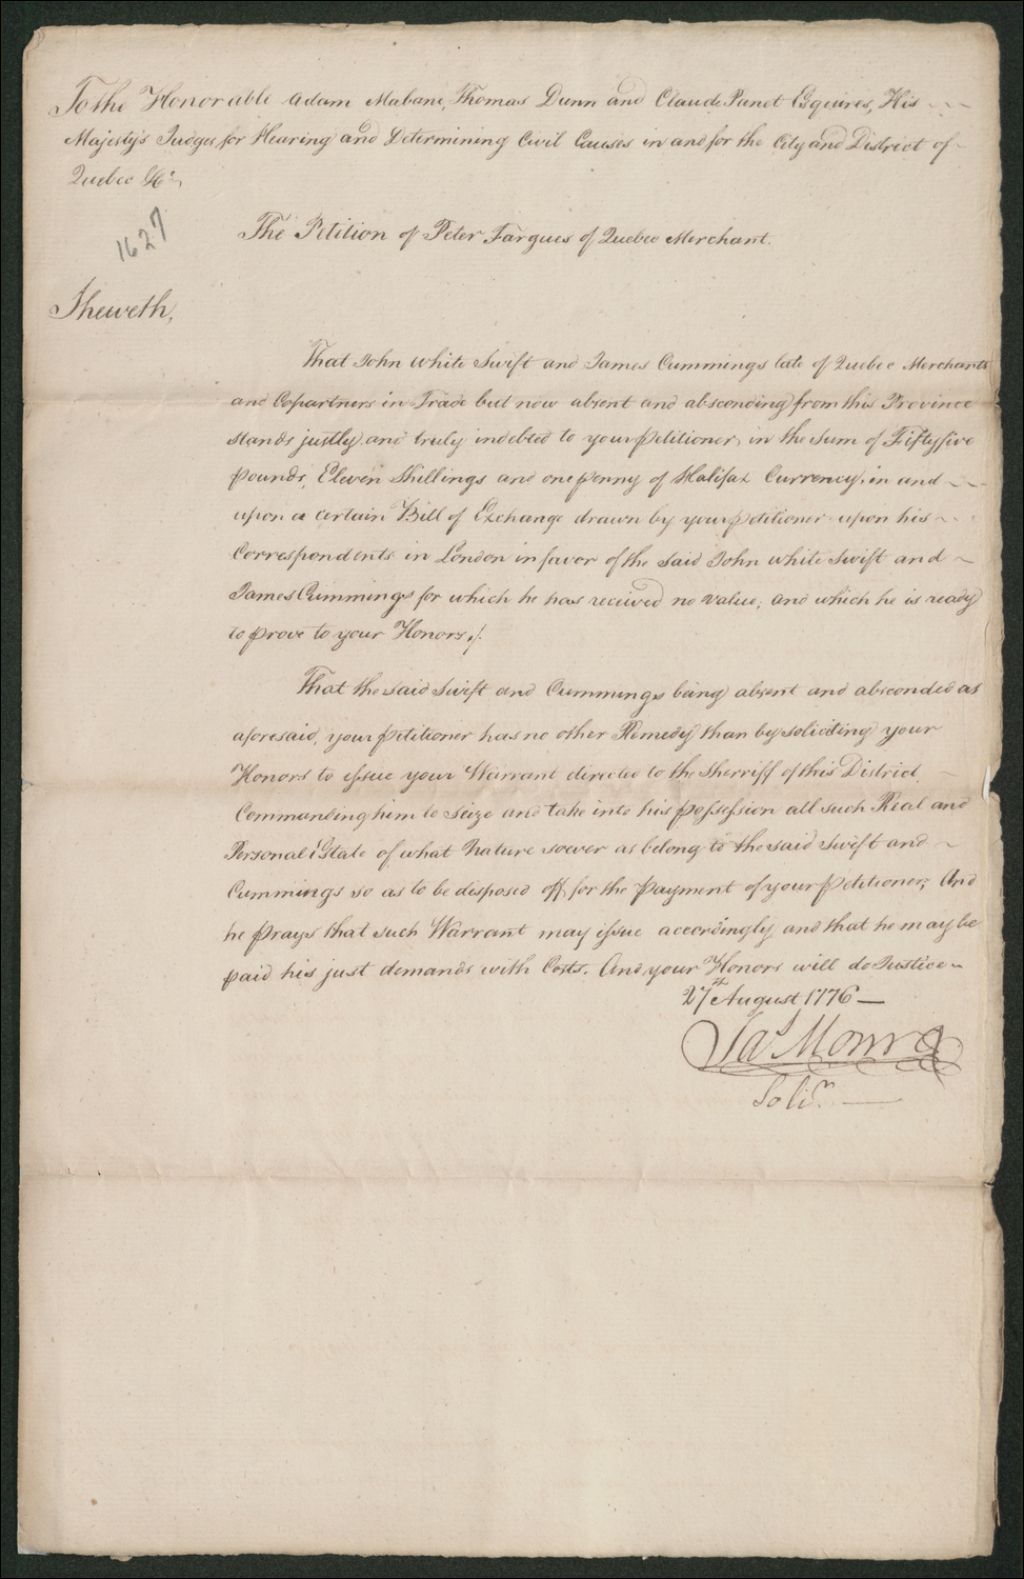 To the Honorable Adam Mabane, Thomas Dunn and Claude Panet Esquires, His
Majesty's Judges for Hearing and Determining Civil Causes in and for the City and District of
Quebec &c.
1627
The Petition of Peter Fargues of Quebec Merchant.
Sheweth,
That John White Swift and James Cummings late of Quebec Merchants
and Copartners in Trade but now absent and absconding from this Province
stands justly and truly indebted to your petitioner, in the Sum of Fiftyfive
pounds, Eleven Shillings and one penny of Halifax Currency, in and
upon a certain Bill of Exchange drawn by your petitioner upon his
Correspondents in London in favor of the said John White Swift and
James Cummings for which he has received no value, and which he is ready
to prove to your Honors./.
That the said Swift and Cummings being absent and absconded as
aforesaid, your petitioner has no other Remedy than by soliciting your
Honors to issue your Warrant directed to the Sherriff of this District
Commanding him to seize and take into his possession all such Real and
Personal Estate of what Nature soever as belong to the said Swift and
Cummings so as to be disposed off for the payment of your petitioner; And
he prays that such Warrant may issue accordingly and that he may be
paid his just demands with Costs. And your Honors will do Justice
27th August 1776
Jas Monro
Solir.